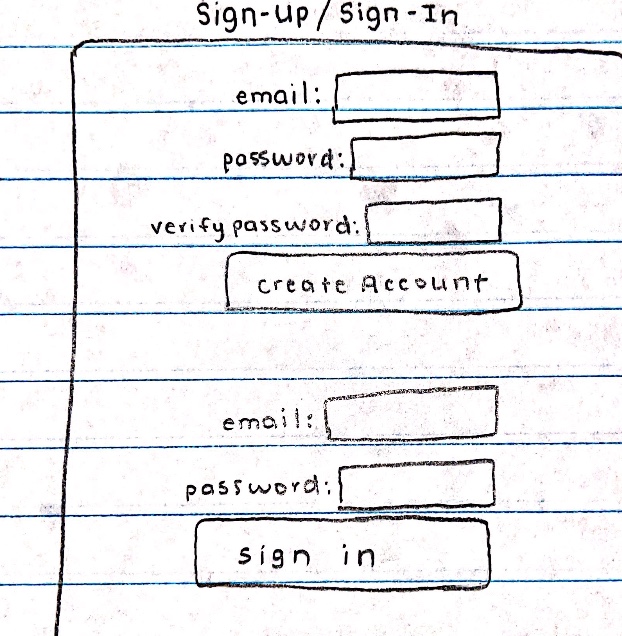 Sign-Up / Sign-In
email:
password:
verify password:
create Account
email:
password:
sign in